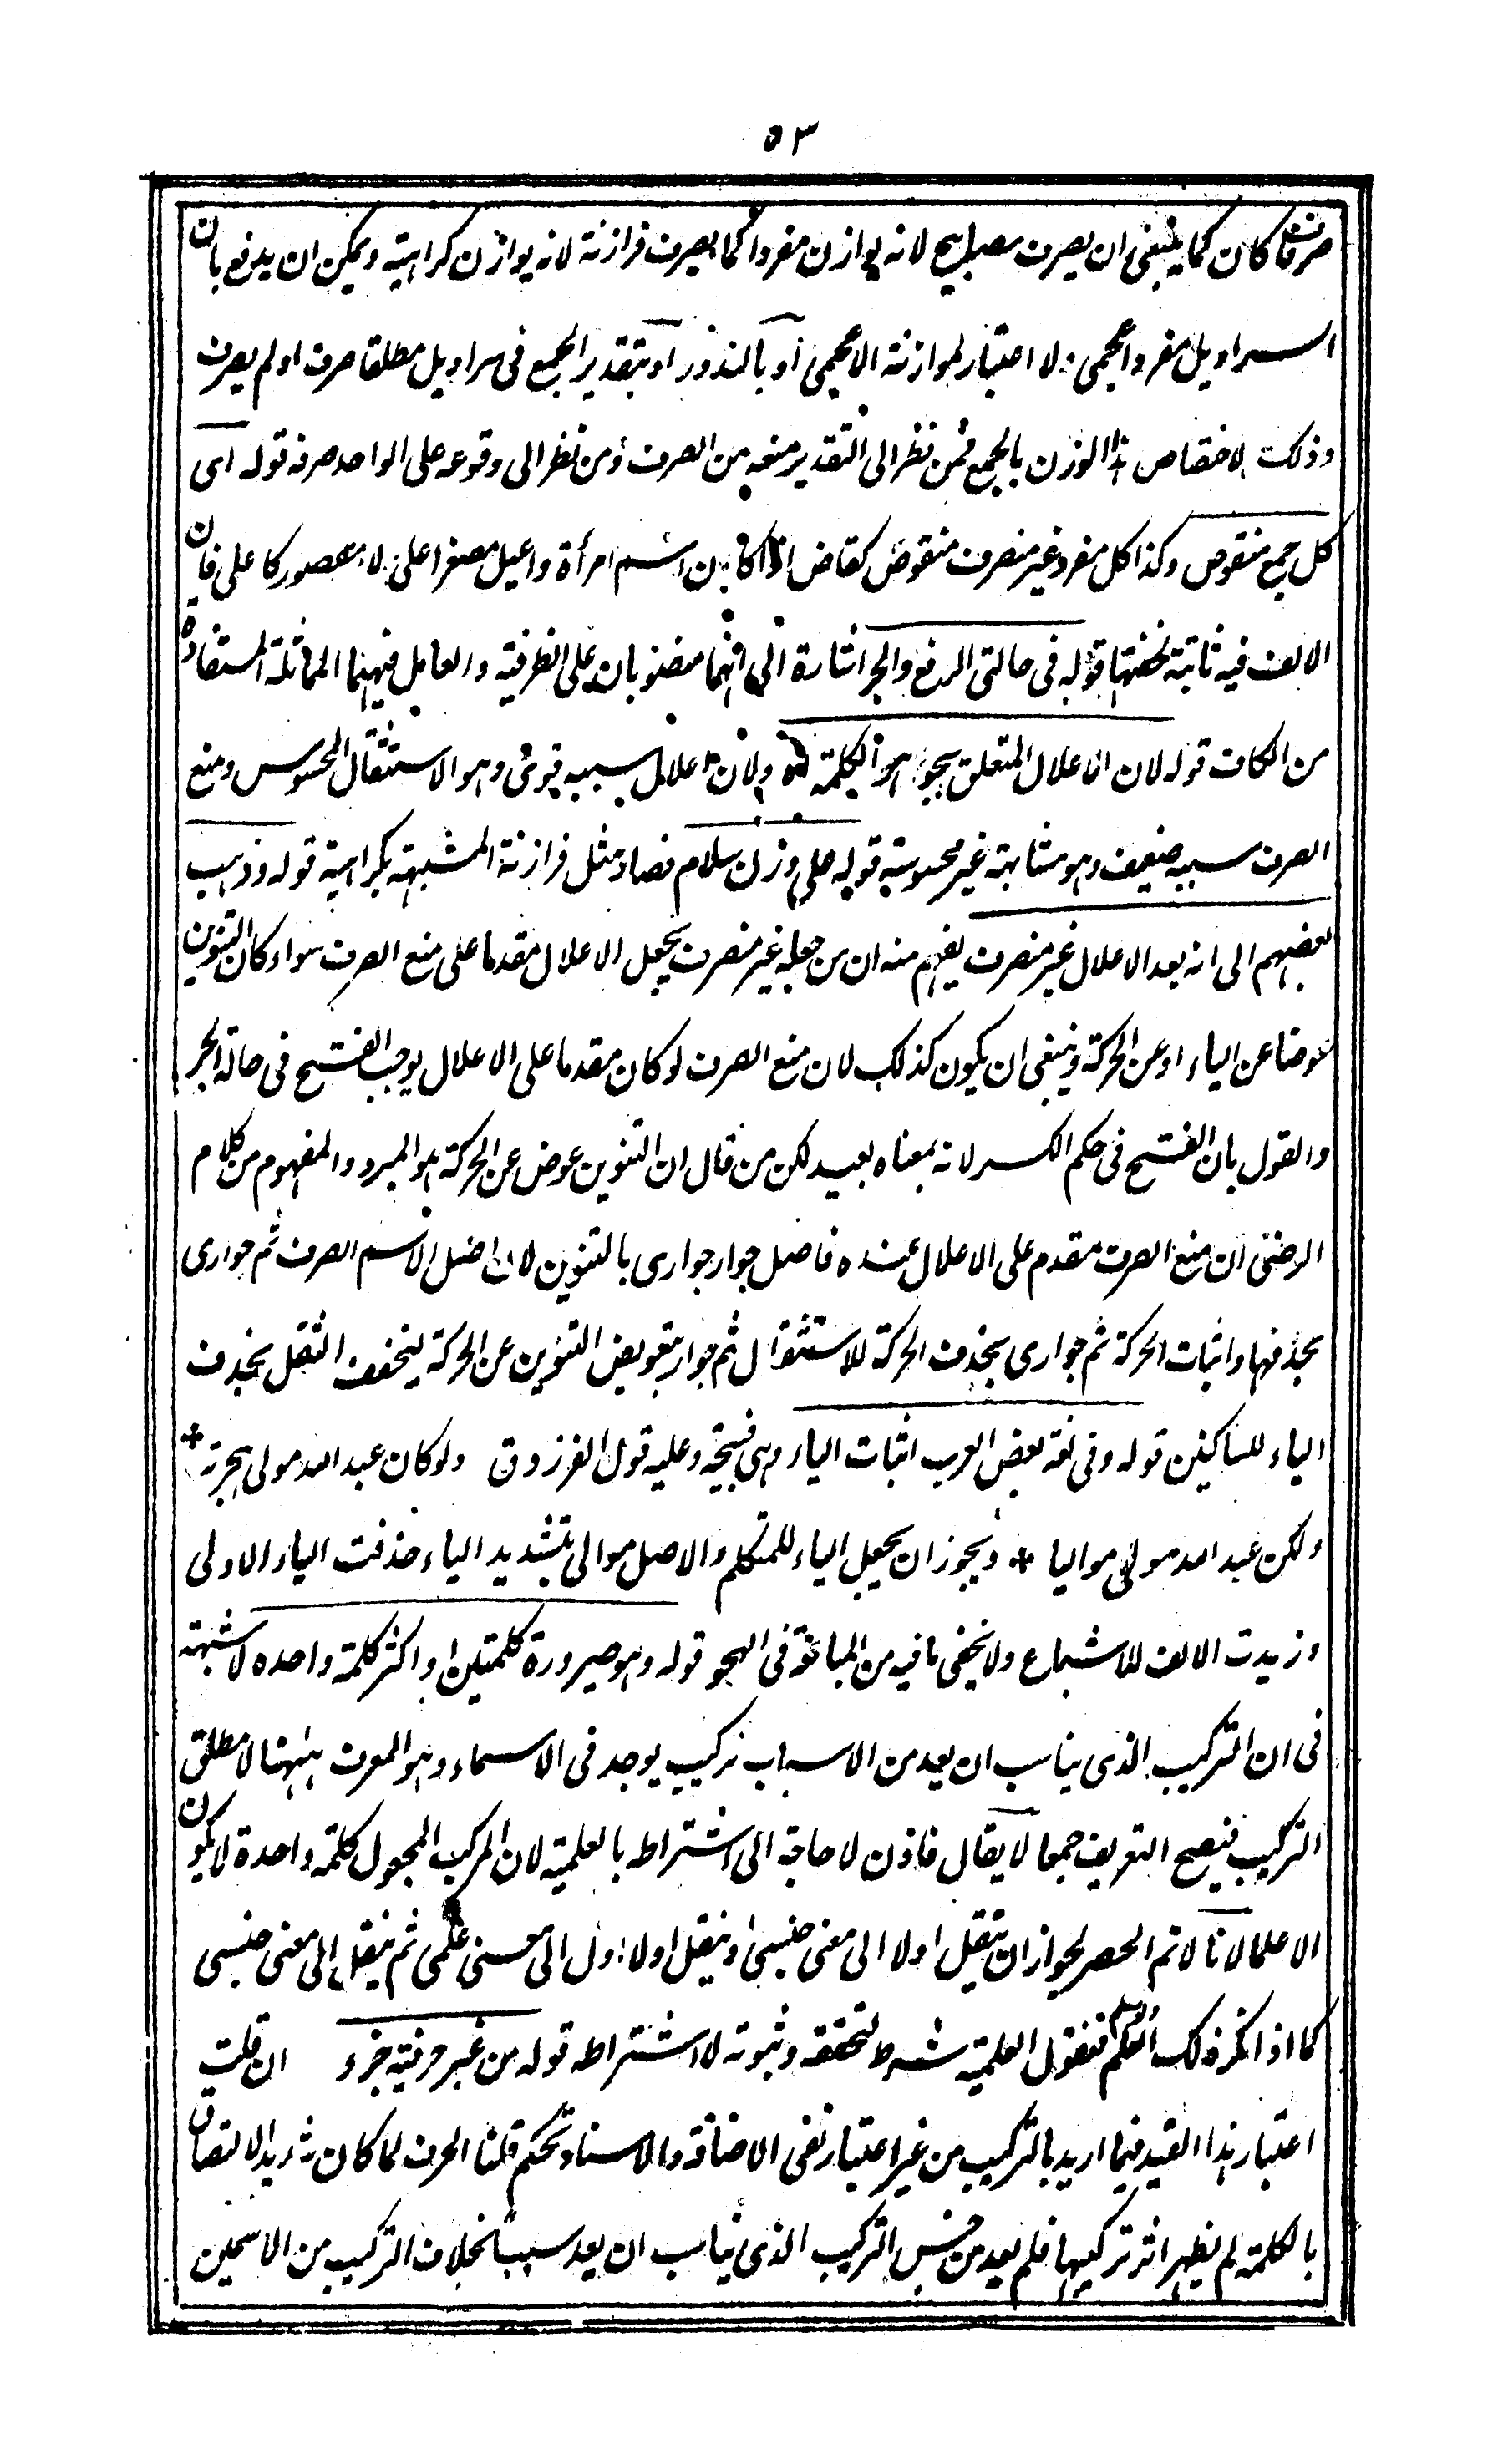 ٥٣
صرفا كان كما ينبغى ان يصرف مصابيح لانه يوازن مفردا كما يصرف فرازنة لانه يوازن كراهية ويمكن ان يدفع بان
السراويل مفرد اعجمى ولا اعتبار لموازنة الاعجمى او بالندور او بتقدير الجمع فى سراويل مطلقا صرف او لم يصرف
وذلك لاختصاص هذا الوزن بالجمع فمن نظر الى التقدير منعه من الصرف ومن نظر الى وقوعه على الواحد صرفه قوله اى
كل جمع منقوص وكذا كل مفرد غير منصرف منقوص كقاض اذا كان اسم امرأة واعيل مصغرا على لا مقصور كاعلى فان
الالف فيه ثابتة لخفتها قوله فى حالتى الرفع والجر اشارة الى انهما منصوبان على الظرفية والعامل فيهما المماثلة المستفادة
من الكاف قوله لان الاعلال المتعلق بجوهر الكلمة ولان الاعلال سببه قوى وهو الاستثقال المحسوس ومنع
الصرف سببه ضعيف وهو مشابهة غير محسوسة قوله على وزن سلام فصار مثل فرازنة المشبهة بكراهية قوله وذهب
بعضهم الى انه بعد الاعلال غير منصرف يفهم منه ان من جعله غير منصرف يجعل الاعلال مقدما على منع الصرف سواء كان التنوين
عوضا عن الياء او عن الحركة وينبغى ان يكون كذلك لان منع الصرف لو كان مقدما على الاعلال يوجب الفتح فى حالة الجر
والقول بان الفتح فى حكم الكسر لانه بمعناه بعيد لكن من قال ان التنوين عوض عن الحركة هو المبرد والمفهوم من كلام
الرضى ان منع الصرف مقدم على الاعلال عنده فاصل جوار جوارى بالتنوين لان اصل الاسم الصرف ثم جوارى
بحذفها واثبات الحركة ثم جوارى بحذف الحركة للاستثقال ثم جوار بتعويض التنوين عن الحركة ليخفف الثقل بحذف
الياء للساكنين قوله وفى لغة بعض العرب اثبات الياء وهى قبيحة وعليه قول الفرزدق ولو كان عبد الله مولى هجرته *
ولكن عبد الله مولى مواليا * ويجوز ان يجعل الياء للمتكلم والاصل موالى بتشديد الياء حذفت الياء الاولى
وزيدت الالف للاشباع ولا يخفى ما فيه من المبالغة فى الهجو قوله وهو صيرورة كلمتين او اكثر كلمة واحدة لا شبهة
فى ان التركيب الذى يناسب ان يعد من الاسباب تركيب يوجد فى الاسماء وهو المعرف ههنا لا مطلق
التركيب فيصح التعريف جمعا لا يقال فاذن لا حاجة الى اشتراطه بالعلمية لان المركب المجعول كلمة واحدة لا يكون
الا علما لانا لا تم الحصر لجواز ان ينقل اولا الى معنى جنسى او ينقل اولا الى معنى علمى ثم ينقل الى معنى جنسى
كما اذا نكر ذلك العلم فنقول العلمية شرط لتحققه وثبوته لا اشتراطه قوله من غير حرفية جزء ان قلت
اعتبار هذا القيد فيما اريد بالتركيب من غير اعتبار نفى الاضافة والاسناد تحكم قلنا الحرف لما كان شديد الالتصاق
بالكلمة لم يظهر اثر تركيبها فلم يعد من جنس التركيب الذى يناسب ان يعد سببا بخلاف التركيب من الاسمين